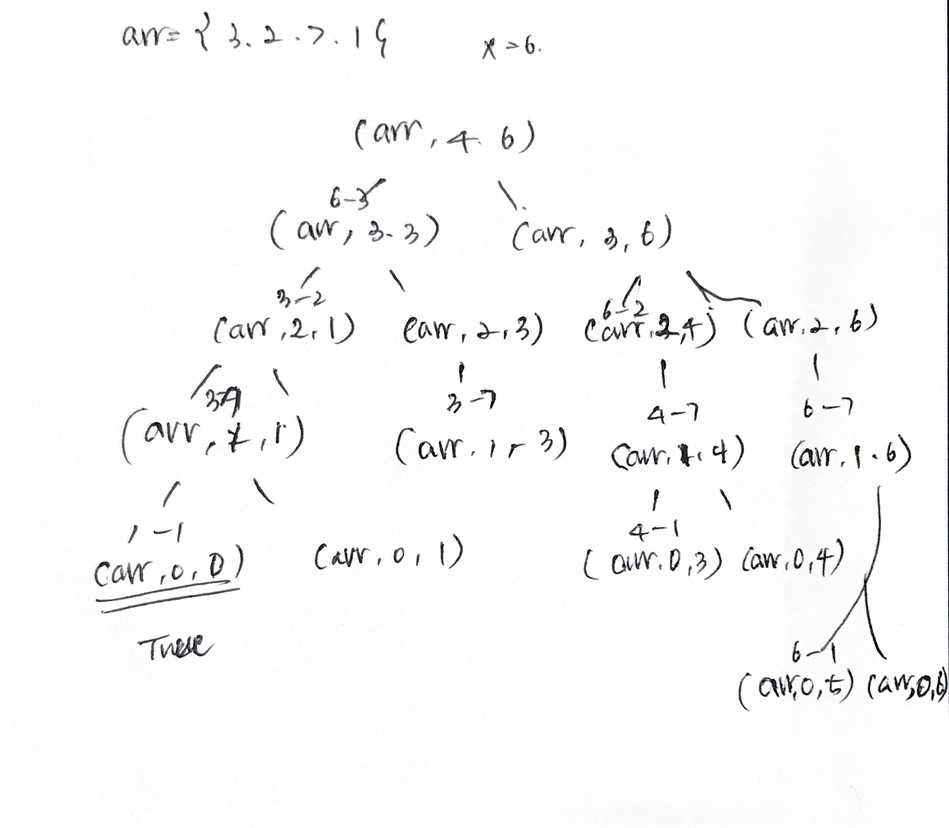 arr= { 3. 2. 7. 1 } x = 6.
(arr, 4. 6)
6-3
(arr, 3. 3) (arr, 3, 6)
3-2 6-2
(arr, 2, 1) (arr, 2, 3) (arr, 2, 4) (arr, 2, 6)
3-7 4-7 6-7
(arr, 1, 1) (arr. 1, 3) (arr, 1, 4) (arr, 1. 6)
1-1 4-1
(arr, 0, 0) (arr, 0, 1) (arr. 0, 3) (arr, 0, 4)
6-1
(arr, 0, 5) (arr, 0, 6)